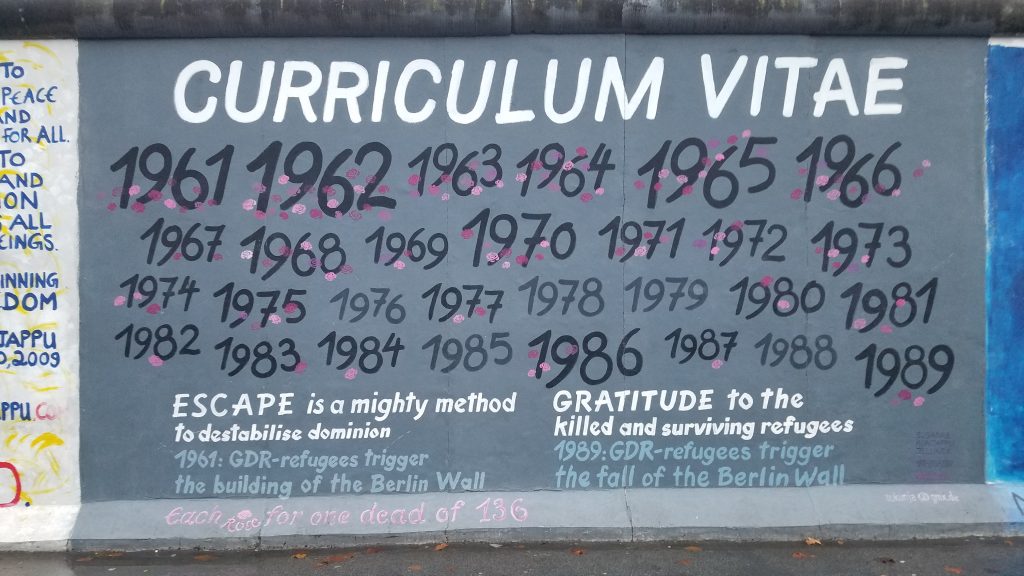 TO
PEACE
AND
FOR ALL.
TO
AND
ON
ALL
EINGS.
INNING
DOM
TAPPU
0,2009
APPU.CO
CURRICULUM VITAE
1961 1962 1963 1964 1965 1966
1967 1968 1969 1970 1971 1972 1973
1974 1975 1976 1977 1978 1979 1980 1981
1982 1983 1984 1985 1986 1987 1988 1989
ESCAPE is a mighty method
to destabilise dominion
1961: GDR-refugees trigger
the building of the Berlin Wall
GRATITUDE to the
killed and surviving refugees
1989: GDR-refugees trigger
the fall of the Berlin Wall
Each Rose for one dead of 136